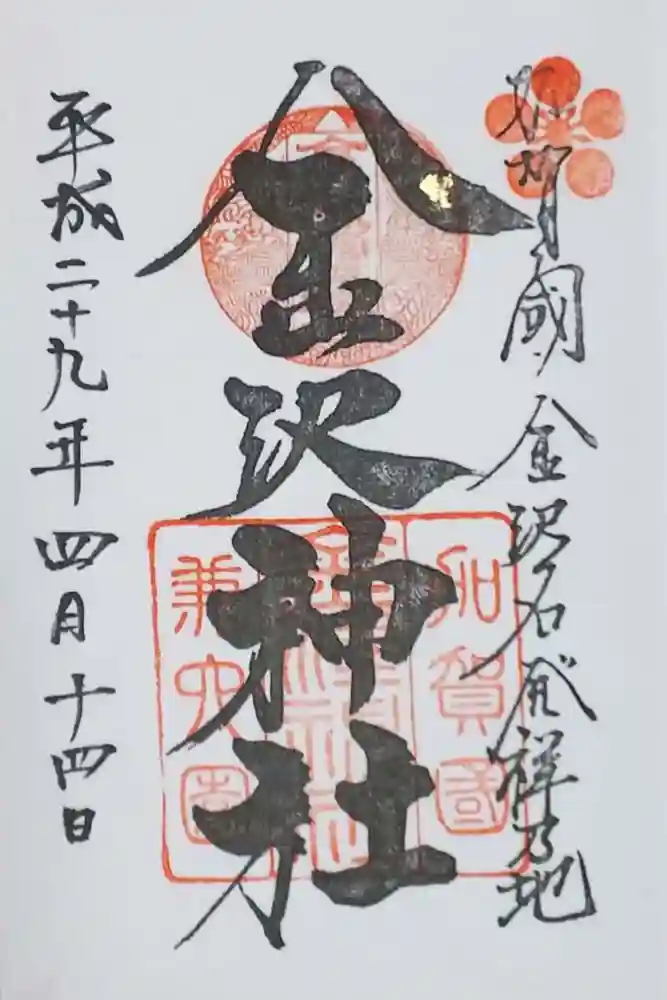 加賀國金沢名発祥乃地
金沢神社
平成二十九年四月十四日
加賀國
金沢神社
兼六園